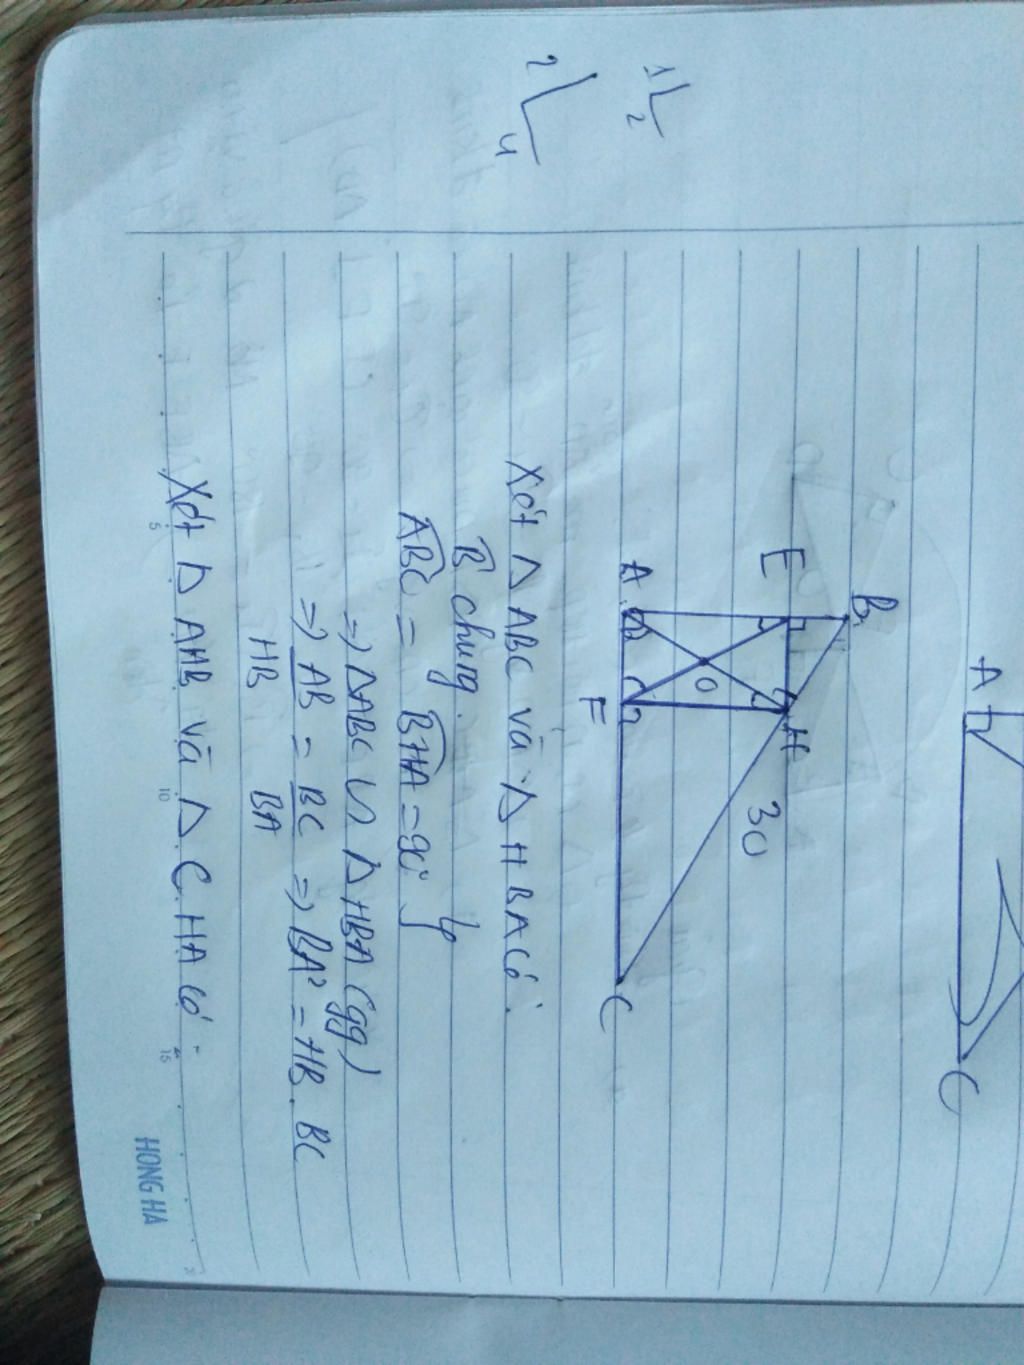 1 2
2 4
A
C
B
E
H
30
O
A
F
C
Xét Δ ABC và Δ HBA có:
B chung.
ABC = BHA = 90°
=> ΔABC ∽ Δ HBA (gg)
=> AB/HB = BC/BA => BA² = HB.BC
Xét Δ AHB và Δ CHA có:
5 10 15
HONG HA